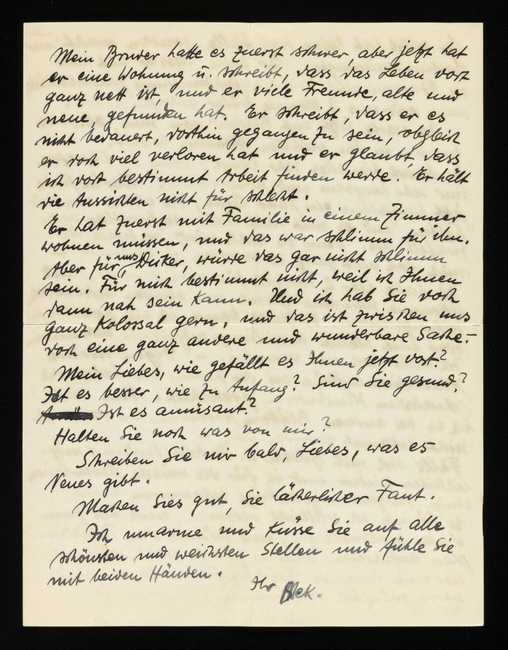 Mein Bruder hatte es zuerst schwer, aber jetzt hat
er eine Wohnung u. schreibt, dass das Leben dort
ganz nett ist, und er viele Freunde, alte und
neue, gefunden hat. Er schreibt, dass er es
nicht bedauert, dorthin gegangen zu sein, obgleich
er doch viel verloren hat und er glaubt, dass
ich dort bestimmt Arbeit finden werde. Er hält
die Aussichten nicht für schlecht.
Er hat zuerst mit Familie in einem Zimmer
wohnen müssen, und das war schlimm für ihn.
Aber für uns, Dicker, würde das gar nicht schlimm
sein. Für mich bestimmt nicht, weil ich Ihnen
dann nah sein kann. Und ich hab Sie doch
ganz kolossal gern, und das ist zwischen uns
doch eine ganz andere und wunderbare Sache.-
Mein Liebes, wie gefällt es Ihnen jetzt dort?
Ist es besser, wie zu Anfang? Sind Sie gesund?
Ist es amüsant?
Halten Sie noch was von mir?
Schreiben Sie mir bald, Liebes, was es
Neues gibt.
Machen Sies gut, Sie lächerlicher Fant.
Ich umarme und küsse Sie auf alle
schönsten und weichsten Stellen und fühle Sie
mit beiden Händen.
Ihr